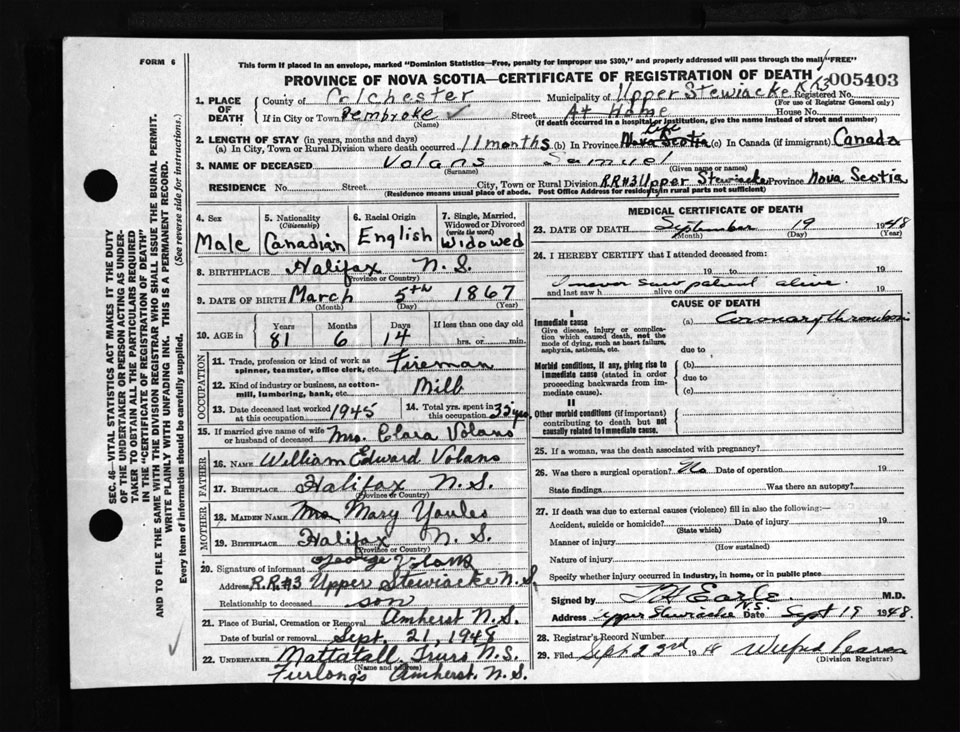 FORM 6
This form if placed in an envelope, marked "Dominion Statistics—Free, penalty for improper use $300," and properly addressed will pass through the mail "FREE"
PROVINCE OF NOVA SCOTIA—CERTIFICATE OF REGISTRATION OF DEATH 005403
1. PLACE OF DEATH County of Colchester Municipality of Upper Stewiacke RR3 Registered No.
(For use of Registrar General only)
If in City or Town Pembroke Street At Home House No.
(Name) (If death occurred in a hospital or institution, give the name instead of street and number)
2. LENGTH OF STAY (in years, months and days)
(a) In City, Town or Rural Division where death occurred 11 months (b) In Province Nova Scotia Life (c) In Canada (if immigrant) Canada
3. NAME OF DECEASED Volans Samuel
(Surname) (Given name or names)
RESIDENCE No. Street City, Town or Rural Division R.R #3 Upper Stewiacke Province Nova Scotia
(Residence means usual place of abode. Post Office Address for residents in rural parts not sufficient)
4. Sex Male
5. Nationality (Citizenship) Canadian
6. Racial Origin English
7. Single, Married, Widowed or Divorced (write the word) Widowed
8. BIRTHPLACE Halifax N.S.
(Province or Country)
9. DATE OF BIRTH March 5th 1867
(Month) (Day) (Year)
10. AGE in Years 81 Months 6 Days 14 If less than one day hrs. or min.
OCCUPATION
11. Trade, profession or kind of work as spinner, teamster, office clerk, etc. Fireman
12. Kind of industry or business, as cotton-mill, lumbering, bank, etc. Mill
13. Date deceased last worked at this occupation 1945
14. Total yrs. spent in this occupation 35 yrs.
15. If married give name of wife or husband of deceased Mrs. Clara Volans
FATHER
16. NAME William Edward Volans
17. BIRTHPLACE Halifax N.S.
(Province or Country)
MOTHER
18. MAIDEN NAME Mrs Mary
19. BIRTHPLACE Halifax N.S.
(Province or Country)
20. Signature of informant George Volans
Address R.R #3 Upper Stewiacke N.S.
Relationship to deceased son
21. Place of Burial, Cremation or Removal Amherst N.S.
Date of burial or removal Sept. 21, 1948
22. UNDERTAKER Mattatall Truro N.S.
(Name and Address)
Furlongs Amherst, N.S.
MEDICAL CERTIFICATE OF DEATH
23. DATE OF DEATH September 19 1948
(Month) (Day) (Year)
24. I HEREBY CERTIFY that I attended deceased from:
19 to 19
and last saw h alive on 19
I never saw patient alive.
CAUSE OF DEATH
I
Immediate cause
Give disease, injury or complication which caused death, not the mode of dying, such as heart failure, asphyxia, asthenia, etc.
(a) Coronary thrombosis
due to
Morbid conditions, if any, giving rise to immediate cause (stated in order proceeding backwards from immediate cause).
(b)
due to
(c)
II
Other morbid conditions (if important) contributing to death but not causally related to immediate cause.
25. If a woman, was the death associated with pregnancy?
26. Was there a surgical operation? No Date of operation 19
State findings Was there an autopsy?
27. If death was due to external causes (violence) fill in also the following:—
Accident, suicide or homicide? Date of injury 19
(State which)
Manner of injury
(How sustained)
Nature of injury
Specify whether injury occurred in industry, in home, or in public place
Signed by Earle M.D.
Address upper Stewiacke N.S. Date Sept 19 1948.
28. Registrar's Record Number
29. Filed Sept 22nd 1948 Wilfred
(Division Registrar)
SEC. 46—VITAL STATISTICS ACT MAKES IT THE DUTY
OF THE UNDERTAKER OR PERSON ACTING AS UNDER-
TAKER TO OBTAIN ALL THE PARTICULARS REQUIRED
IN THE "CERTIFICATE OF REGISTRATION OF DEATH"
AND TO FILE THE SAME WITH THE DIVISION REGISTRAR WHO SHALL ISSUE THE BURIAL PERMIT.
WRITE PLAINLY WITH UNFADING INK. THIS IS A PERMANENT RECORD.
Every item of information should be carefully supplied. (See reverse side for instructions.)